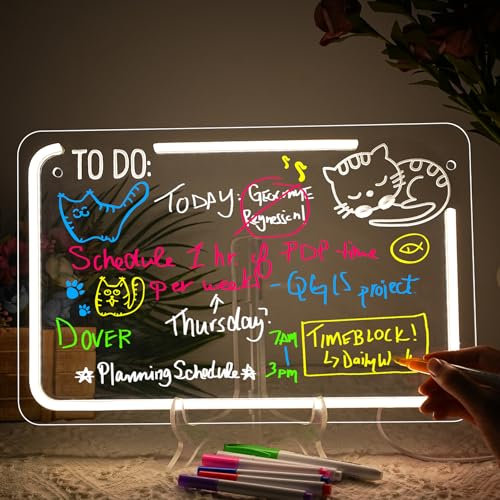 TO DO:
TODAY:
Regression!
Schedule 1 hr of PDP time
per week - QGIS project
Thursday:
7AM
TIMEBLOCK!
DOVER
↳ Daily
☆ Planning Schedule ☆
3pm